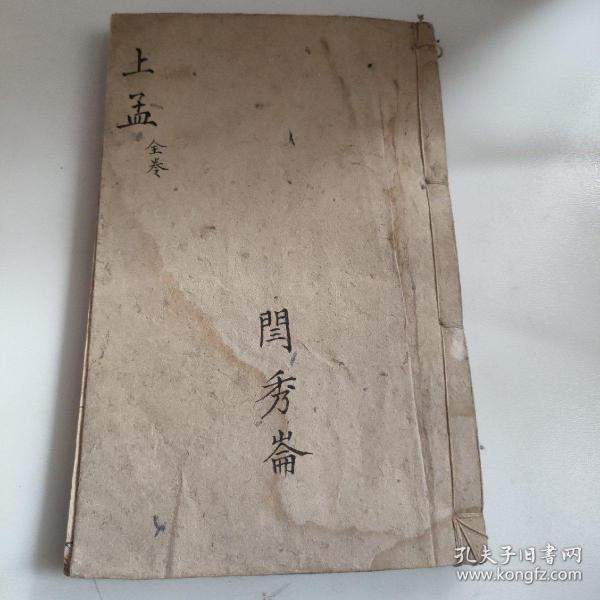 上孟
全卷
閆秀崙
孔夫子旧書网
www.kongfz.com